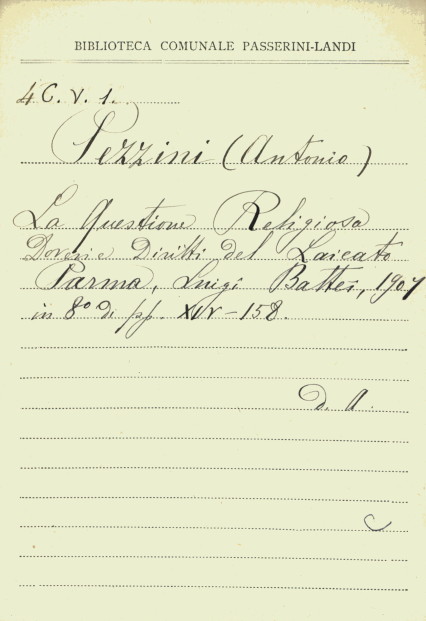 BIBLIOTECA COMUNALE PASSERINI-LANDI
4 C. V. 1.
Pezzini (Antonio)
La Questione Religiosa
Doveri e Diritti del Laicato
Parma, Luigi Battei, 1907
in 8° di pp. XIV-158.
D. A.
C